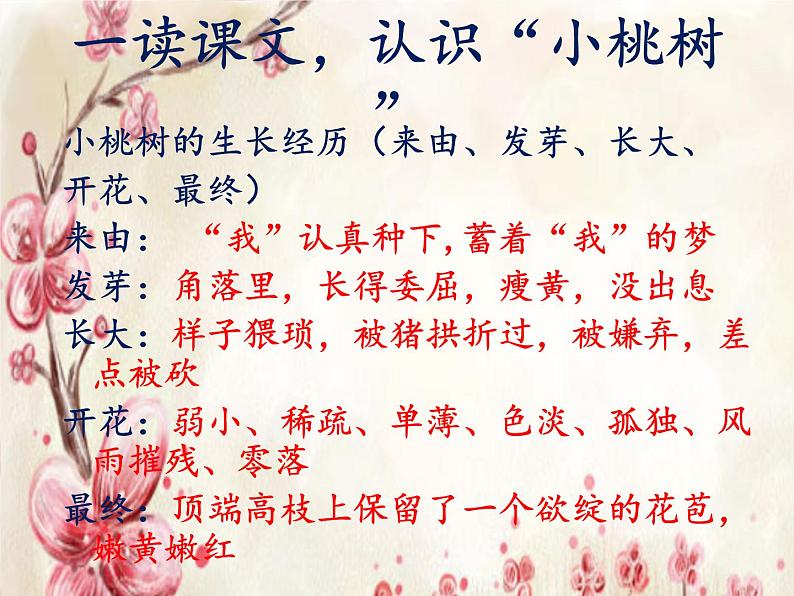 一读课文，认识“小桃树
”
小桃树的生长经历（来由、发芽、长大、
开花、最终）
来由： “我”认真种下,蓄着“我”的梦
发芽：角落里，长得委屈，瘦黄，没出息
长大：样子猥琐，被猪拱折过，被嫌弃，差
点被砍
开花：弱小、稀疏、单薄、色淡、孤独、风
雨摧残、零落
最终：顶端高枝上保留了一个欲绽的花苞，
嫩黄嫩红